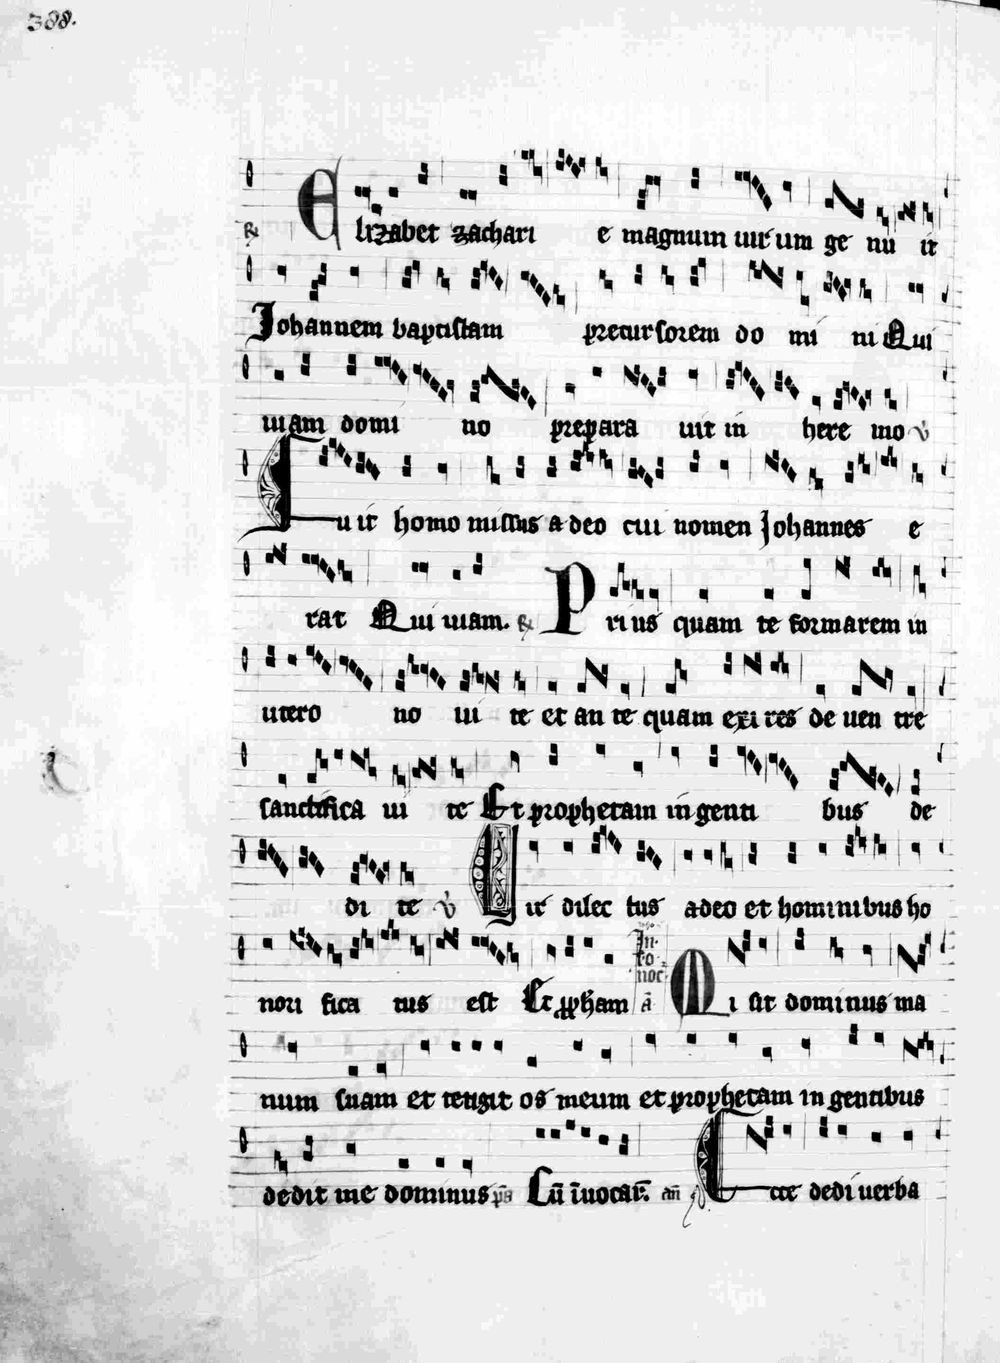 388.
℟ Elizabet zachari e magnum uirum ge nu it
Johannem baptistam precursorem do mi ni Qui
uiam domi no prepara uit in here mo ℣
Fuit homo missus a deo cui nomen Johannes e
rat Qui uiam. ℟ Prius quam te formarem in
utero no ui te et an te quam exi res de uen tre
sanctifica ui te Et prophetam in genti bus de
di te ℣ Uir dilec tus a deo et hominibus ho
nori fica tus est Et ꝓpham In. to noc. a Misit dominus ma
num suam et tetigit os meum et prophetam in gentibus
dedit me dominus ps Cū īuocar̄. an Ecce dedi uerba